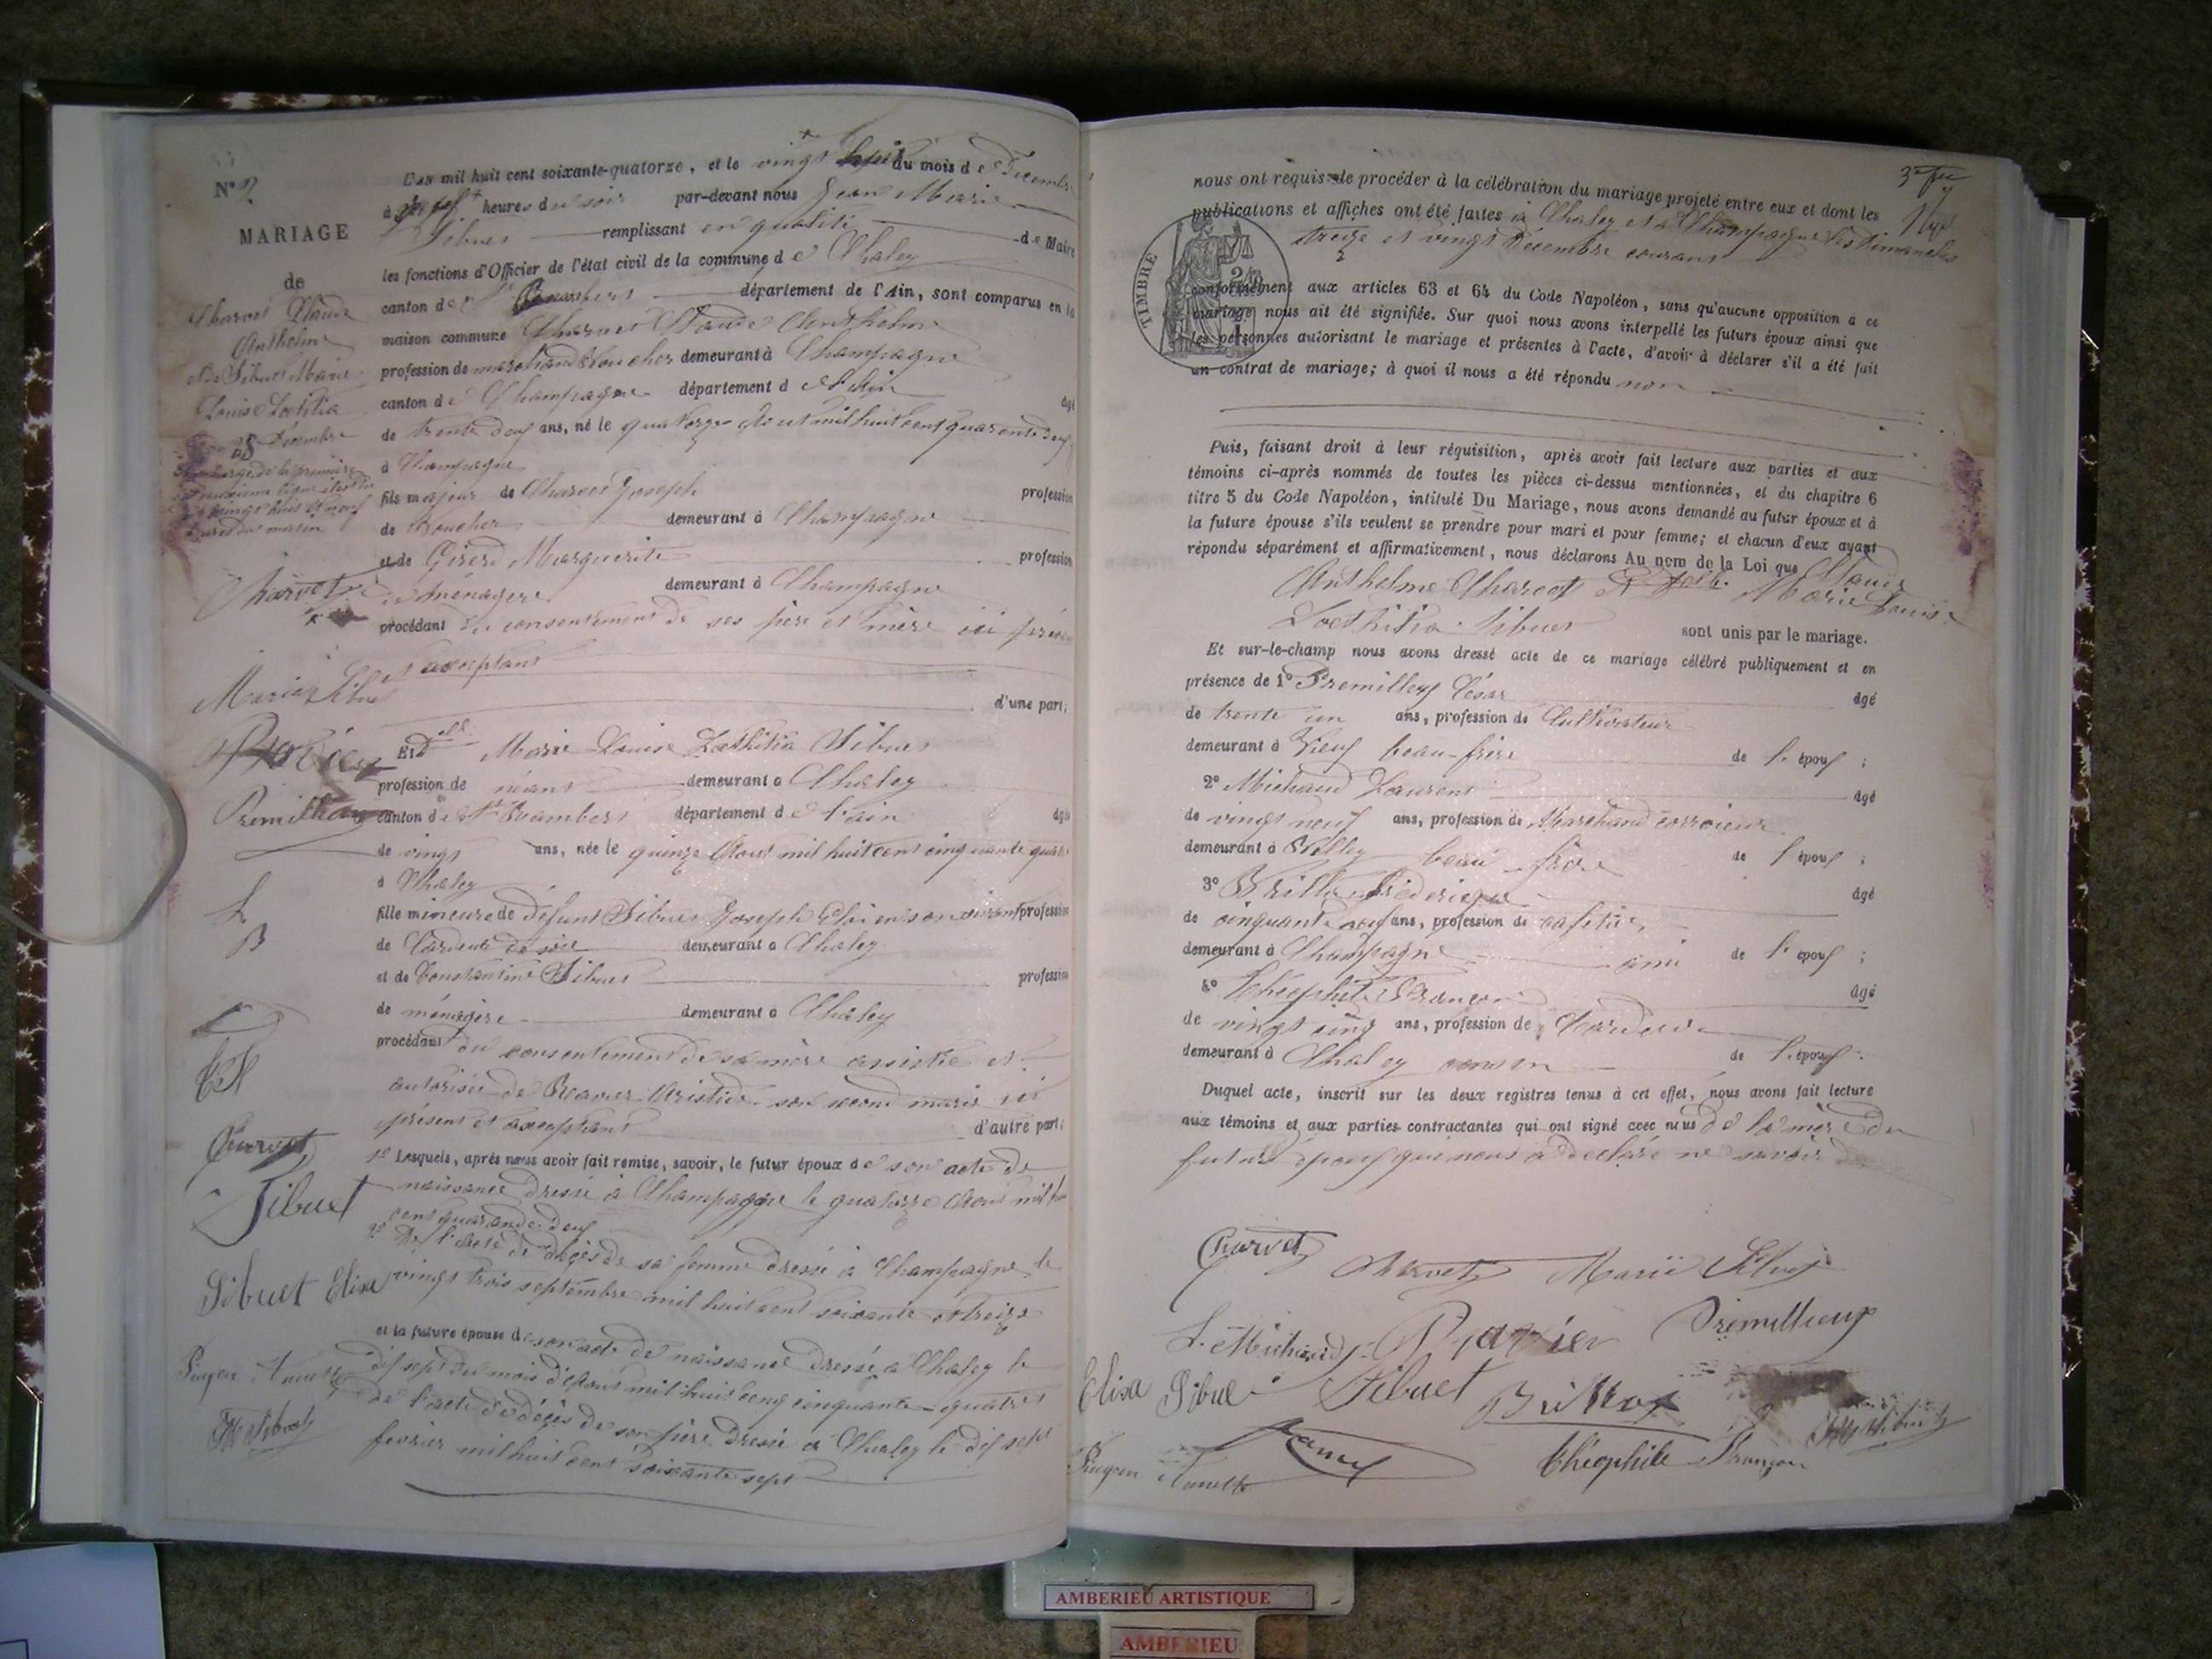 N° 2
MARIAGE
de
Charvet Claude
Anthelme
et de Sibuet Marie
Louise Loethitia
28 Décembre
L'an mil huit cent soixante-quatorze, et le vingt du mois de Décembre
à heures du soir par-devant nous Jean Marie
Sibuet remplissant en qualité de Maire
les fonctions d'Officier de l'état civil de la commune de Chaley
canton de St Rambert département de l'Ain, sont comparus en la
maison commune Charvet Claude Anthelme
profession de marchand Boucher demeurant à Champagne
canton de Champagne département de l'Ain âgé
de trente deux ans, né le quatorze Aout mil huit cent quarante deux
à Champagne
fils majeur de Charvet Joseph profession
de Boucher demeurant à Champagne
et de Girerd Marguerite profession
de ménagère demeurant à Champagne
procédant du consentement de ses père et mère ici présents
et acceptant
d'une part;
Et Dlle Marie Louise Loethitia Sibuet
profession de néant demeurant à Chaley
canton de St Rambert département de l'ain âgée
de vingt ans, née le quinze Aout mil huit cent cinquante quatre
à Chaley
fille mineure de défunt Sibuet Joseph en son vivant profession
de Cardeur de soie demeurant à Chaley
et de Constantine Sibuet profession
de ménagère demeurant à Chaley
procédant du consentement de sa mère assistée et
autorisée de Aristide son second mari ici
présent et acceptant d'autre part;
1° Lesquels, après nous avoir fait remise, savoir, le futur époux de son acte de
naissance dressé à Champagne le quatorze Aout mil huit
cent quarante deux
2° De l'acte de décès de sa femme dressé à Champagne le
vingt trois septembre mil huit cent soixante et treize
et la future épouse de son acte de naissance dressé à Chaley le
dix sept du mois d'aout mil huit cent cinquante quatre
de l'acte de décès de son père dressé à Chaley le dix sept
fevrier mil huit cent soixante sept
Charvet
Marie Sibuet
Premillieux
L
B
Charvet
Sibuet
Sibuet Elisa
nous ont requis de procéder à la célébration du mariage projeté entre eux et dont les
publications et affiches ont été faites à Chaley et à Champagne les Dimanches
treize et vingt Décembre courant
TIMBRE
conformément aux articles 63 et 64 du Code Napoléon, sans qu'aucune opposition a ce
mariage nous ait été signifiée. Sur quoi nous avons interpellé les futurs époux ainsi que
les personnes autorisant le mariage et présentes à l'acte, d'avoir à déclarer s'il a été fait
un contrat de mariage; à quoi il nous a été répondu non
Puis, faisant droit à leur réquisition, après avoir fait lecture aux parties et aux
témoins ci-après nommés de toutes les pièces ci-dessus mentionnées, et du chapitre 6
titre 5 du Code Napoléon, intitulé Du Mariage, nous avons demandé au futur époux et à
la future épouse s'ils veulent se prendre pour mari et pour femme; et chacun d'eux ayant
répondu séparément et affirmativement, nous déclarons Au nom de la Loi que Claude
Anthelme Charvet et Delle Marie Louise
Loethitia Sibuet sont unis par le mariage.
Et sur-le-champ nous avons dressé acte de ce mariage célébré publiquement et en
présence de 1° Premillieux César âgé
de trente un ans, profession de Cultivateur
demeurant à beau-frère de l'époux;
2° Michaud Laurent âgé
de vingt neuf ans, profession de Marchand corroieur
demeurant à Belley beau-frère de l'époux;
3° Frédérique âgé
de cinquante neuf ans, profession de cafetier
demeurant à Champagne ami de l'époux;
4° Théophile Françon âgé
de vingt cinq ans, profession de Cardeur
demeurant à Chaley cousin de l'époux.
Duquel acte, inscrit sur les deux registres tenus à cet effet, nous avons fait lecture
aux témoins et aux parties contractantes qui ont signé avec nous de la mère du
futur époux qui nous a déclaré ne savoir
Charvet Charvet Marie Sibuet
L. Michaud Premillieux
Elisa Sibuet Sibuet
Théophile Françon
AMBERIEU ARTISTIQUE
AMBERIEU